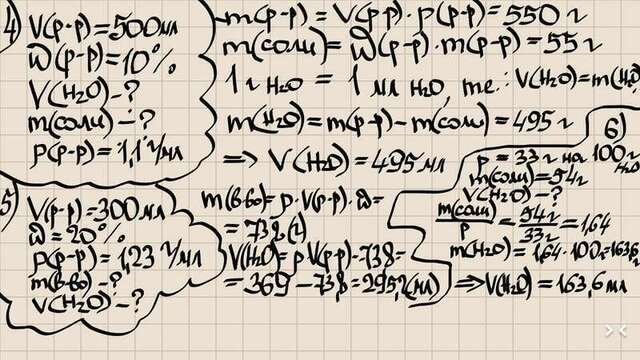 4) V(р-р)=500мл
ω(р-р)=10%
V(H2O)-?
m(соли)-?
ρ(р-р)=1,1 г/мл
m(р-р)=V(р-р)·ρ(р-р)=550г
m(соли)=ω(р-р)·m(р-р)=55г
1г H2O = 1 мл H2O, т.е. V(H2O)=m(H2O)
m(H2O)=m(р-р)-m(соли)=495г
=> V(H2O)=495мл
5) V(р-р)=300мл
ω=20%
ρ(р-р)=1,23 г/мл
m(в-во)-?
V(H2O)-?
m(в-во)=ρ·V(р-р)·ω=
=73,8(г)
V(H2O)=ρV(р-р)-73,8=
=369-73,8=295,2(мл)
6)
р=33г на 100г H2O
m(соли)=54г
V(H2O)-?
m(соли)/р=54г/33г=1,64
m(H2O)=1,64·100г=163,6г
=>V(H2O)=163,6мл